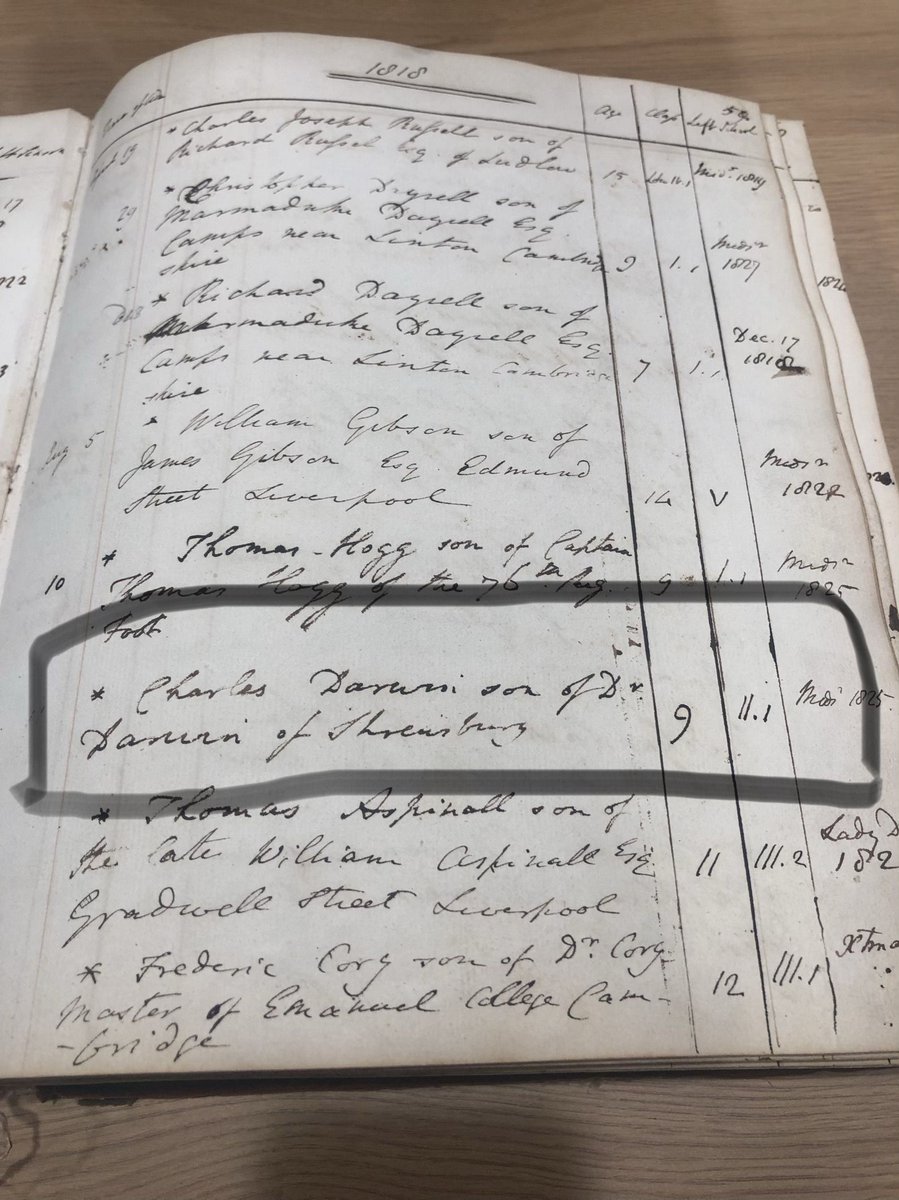 1818
Age Class Left School
* Charles Joseph Russell son of
Richard Russel Esq. of Ludlow 15 1819
29 * Christopher Dayrell son of
Marmaduke Dayrell Esq.
Camps near Linton Cambridge 9 1.1 Midsr 1827
shire
* Richard Dayrell son of
Marmaduke Dayrell Esq.
Camps near Linton Cambridge 7 1.1 Dec. 17 1818
shire
Aug 5 * William Gibson son of
James Gibson Esq. Edmund
Street Liverpool 14 V Midsr
10 * Thomas Hogg son of Captain
Thomas Hogg of the 76th Reg. 9 1.1 Midsr 1825
Foot
* Charles Darwin son of Dr.
Darwin of Shrewsbury 9 II.1 Midsr 1825
* Thomas Aspinall son of
the late William Aspinall Esq. 11 III.2 Lady D
Gradwell Street Liverpool
* Frederic Cory son of Dr. Cory
Master of Emanuel College Cam- 12 III.1 Xtma
-bridge